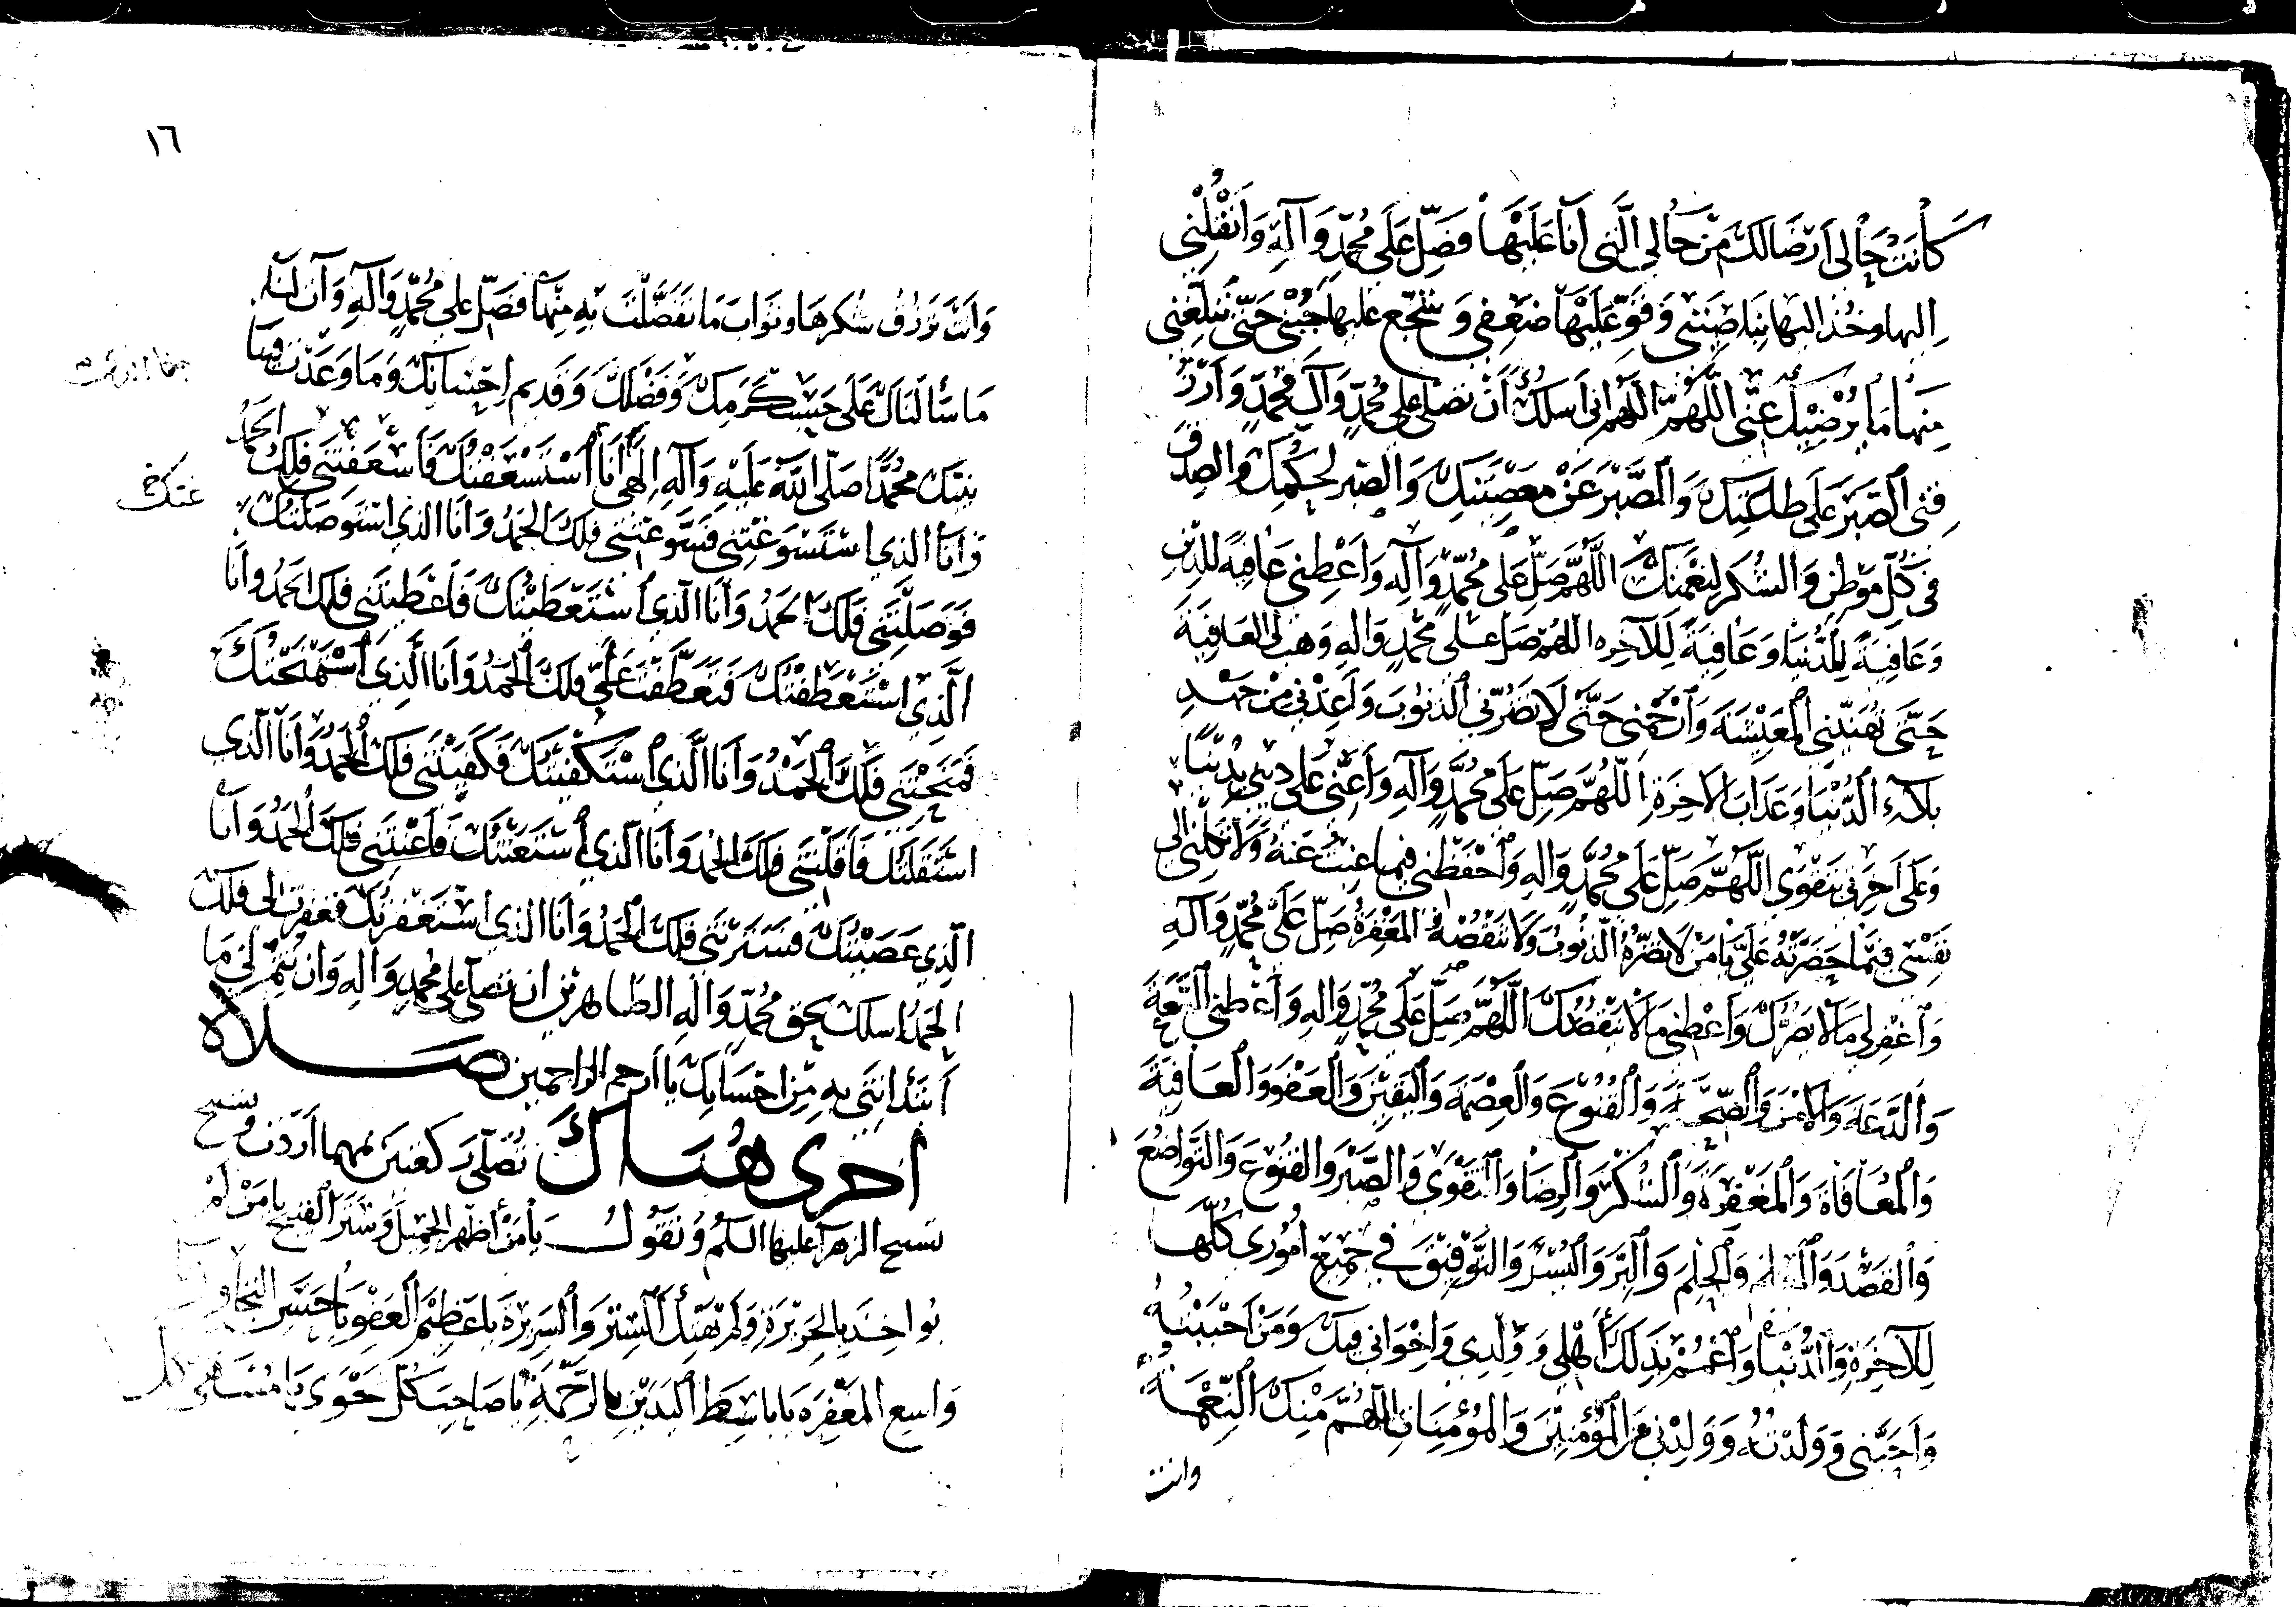 كَانَتْ حَالِي أَرْضَا لَكَ مِنْ حَالِي الَّتِي أَنَا عَلَيْهَا فَصَلِّ عَلَى مُحَمَّدٍ وَآلِهِ وَانْقُلْنِي
إليها وخُذ إليها بِنَاصِيَتِي وَقَوِّ عَلَيْهَا ضَعْفِي وَشَجِّع عليها جُبْنِي حَتَّى تُبَلِّغَنِي
مِنْهَا مَا يُرْضِيكَ عَنِّي اللَّهُمَّ اللَّهُمَّ إني أسلك أَنْ تُصَلِّي عَلَى مُحَمَّدٍ وَآلِ مُحَمَّدٍ وَارْزُ
قني الصَّبْرَ عَلَى طَاعَتِكَ وَالصَّبْرَ عَنْ مَعْصِيَتِكَ وَالصَّبْرَ لِحُكْمِكَ وَالصِّدْقَ
فِي كُلِّ مَوْطِنٍ وَالشُّكْرَ لِنِعْمَتِكَ اللَّهُمَّ صَلِّ عَلَى مُحَمَّدٍ وَآلِهِ وَأَعْطِنِي عَافِيَةً لِلدِّينِ
وَعَافِيَةً لِلدُّنْيَا وَعَافِيَةً لِلآخِرَه اللَّهُمَّ صَلِّ عَلَى مُحَمَّدٍ وَالِهِ وَهَبْ لِيَ الْعَافِيَةَ
حَتَّى تُهَنِّئَنِي الْمَعِيْشَةَ وَارْحَمْنِي حَتَّى لَا تَضُرَّنِي الذُّنُوبَ وَأَعِذْنِي مِنْ جَهْدِ
بَلَاءِ الدُّنْيَا وَعَذَابَ الآخِرَةِ اللَّهُمَّ صَلِّ عَلَى مُحَمَّدٍ وَآلِهِ وَأَعِنِّي عَلَى دِينِي بِدُنْيَا
وَعَلَى آخِرَتِي بِتَقْوَى اللَّهُمَّ صَلِّ عَلَى مُحَمَّدٍ وَالِهِ وَاحْفَظْنِي فِيمَا غِبْتُ عَنْهُ وَلَا تَكِلْنِي إلى
نَفْسِي فِيمَا حَضَرْتُهُ عَلَيَّ يَا مَنْ لَا تَضُرُّهُ الذُّنُوبُ وَلَا تَنْقُصُهُ الْمَغْفِرَةُ صَلِّ عَلَى مُحَمَّدٍ وَآلِهِ
وَاغْفِرْ لِي مَا لَا يَضُرُّكَ وَأَعْطِنِي مَا لَا يَنْقُصُكَ اللَّهُمَّ صَلِّ عَلَى مُحَمَّدٍ وَالِهِ وَأَعْطِنِي السَّعَةَ
وَالدَّعَةَ وَالأَمْنَ وَالصِّحَّةَ وَالْقُنُوعَ وَالْعِصْمَةَ وَالْيَقِيْنَ وَالْعَفْوَ وَالْعَافِيَةَ
وَالْمُعَافَاةَ وَالْمَغْفِرَةَ وَالشُّكْرَ وَالرِّضَا وَالتَّقْوَى وَالصَّبْرَ وَالْقُنُوعَ وَالتَّوَاضُعَ
وَالْقَصْدَ وَالْحِلْمَ وَالْبِرَّ وَالْيُسْرَ وَالتَّوْفِيْقَ فِي جَمِيْعِ أُمُورِي كُلِّهَا
لِلْآخِرَةِ وَالدُّنْيَا وَاعْمُمْ بِذَلِكَ أَهْلِي وَوُلْدِي وَإِخْوَانِي فِيكَ وَمَنْ أَحْبَبْتُهُ
وَأَحَبَّنِي وَوَلَدْتُهُ وَوَلَدَنِي مِنَ الْمُؤْمِنِيْنَ وَالْمُؤْمِنَاتِ اللَّهُمَّ مِنْكَ النِّعْمَةُ
وانت
١٦
وَأَنْتَ تَرْزُقُ شُكْرَهَا وَثَوَابَ مَا تَفَضَّلْتَ بِهِ مِنْهَا فَصَلِّ عَلَى مُحَمَّدٍ وَآلِهِ وَآتِنَا
مَا سَأَلْنَاكَ عَلَى حَسَبِ كَرَمِكَ وَفَضْلِكَ وَقَدِيمِ إِحْسَانِكَ وَمَا وَعَدْتَ فِينَا
نبيَّكَ مُحَمَّدًا صَلَّى اللَّهُ عَلَيْهِ وَآلِهِ إِلَهِي أَنَا اسْتَسْعَفْتُكَ فَأَسْعَفْتَنِي فَلَكَ الْحَمْدُ
وَأَنَا الذي اسْتَسْوَغْتُنِي فَسَوَّغْتَنِي فَلَكَ الحَمْدُ وَأَنَا الذي اسْتَوْصَلْتُكَ
فَوَصَلْتَنِي فَلَكَ الْحَمْدُ وَأَنَا الَّذِي اسْتَعْطَيْتُكَ فَأَعْطَيْتَنِي فَلَكَ الْحَمْدُ وَأَنَا
الَّذِي اسْتَعْطَفْتُكَ فَتَعَطَّفْتَ عَلَيَّ فَلَكَ الْحَمْدُ وَأَنَا الَّذِي اسْتَمْنَحْتُكَ
فَمَنَحْتَنِي فَلَكَ الْحَمْدُ وَأَنَا الَّذِي اسْتَكْفَيْتُكَ فَكَفَيْتَنِي فَلَكَ الْحَمْدُ وَأَنَا الَّذِي
اسْتَقَلْتُكَ فَأَقَلْتَنِي فَلَكَ الْحَمْدُ وَأَنَا الَّذِي اسْتَعَنْتُكَ فَأَعَنْتَنِي فَلَكَ الْحَمْدُ وَأَنَا
الَّذِي عَصَيْتُكَ فَسَتَرْتَنِي فَلَكَ الْحَمْدُ وَأَنَا الذي اسْتَغْفَرْتُكَ فَغَفَرْتَ لِي فَلَكَ
الْحَمْدُ اسلك بحق مُحَمَّدٍ وَآلِهِ الطاهرين ان تُصَلِّيَ عَلَى مُحَمَّدٍ وَآلِهِ وَأَنْ تُتِمَّ لِي مَا
ابْتَدَأْتَنِي بِهِ مِنْ إِحْسَانِكَ يَا أرحم الراحمين صلاه
اخرى هناك تُصَلِّي رَكْعَتَيْنِ مهما أَرَدْتَ وتسبح
تسبيح الزهرآ عليها السلم وَتَقُولُ يَا مَنْ أَظْهَرَ الجَمِيلَ وَسَتَرَ القَبِيحَ يَا مَنْ لَمْ
يُؤَاخِذْ بِالْجَرِيْرَةِ وَلَمْ يَهْتِكِ السِّتْرَ وَالسَّرِيْرَةَ يَا عَظِيْمَ الْعَفْوِ يَا حَسَنَ التجاوز
وَاسِعَ الْمَغْفِرَه يَا بَاسِطَ الْيَدَيْنِ بِالرَّحْمَةِ يَا صَاحِبَ كُلِّ نَجْوَى يَا مُنْتَهَى كل